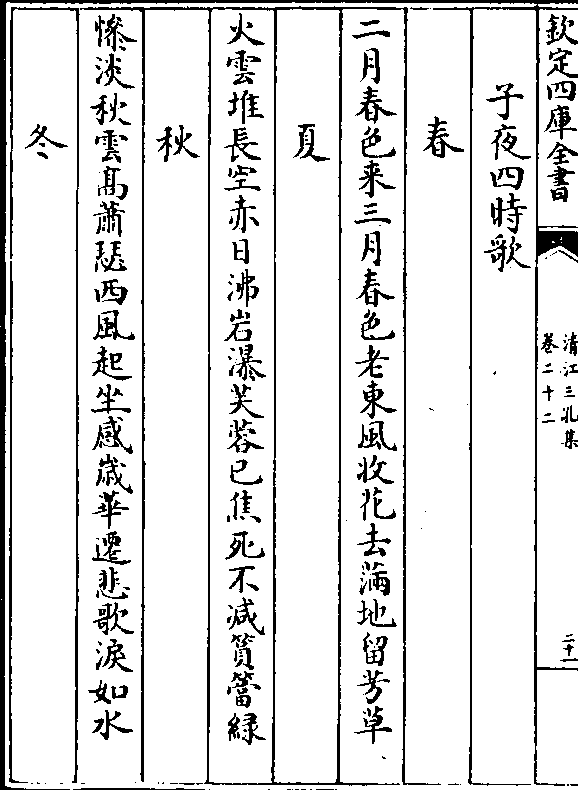 欽定四庫全書
清江三孔集
卷二十二
二十一
子夜四時歌
春
二月春色来三月春色老東風收花去滿地留芳草
夏
火雲堆長空赤日沸岩瀑芙蓉已焦死不减篔簹緑
秋
慘淡秋雲髙蕭瑟西風起坐感歳華遷悲歌淚如水
冬